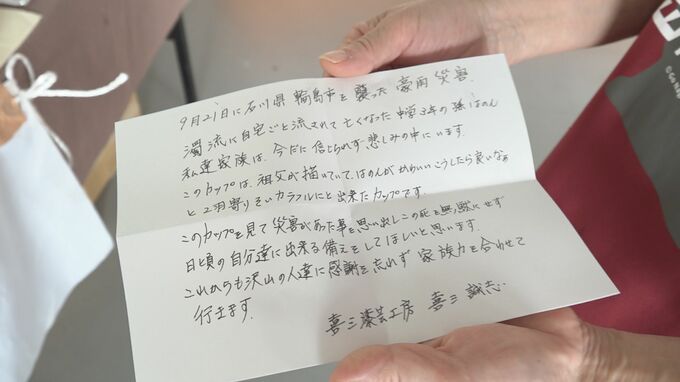 9月21日に石川県輪島市を襲った豪雨災害.
濁流に自宅ごと流されて亡くなった中学3年の孫はのん
私達家族は、今だに信じられず、悲しみの中にいます.
このカップは、祖父が描いていて、はのんがかわいいこうしたら良いなぁ
と2羽寄りそいカラフルにと出来たカップです。
このカップを見て災害があった事を思い出しこの死を無駄にせず
日頃の自分達に出来る備えをしてほしいと思います.
これからも沢山の人達に感謝を忘れず家族力を合わせて
行きます.
喜三漆芸工房 喜三 誠志